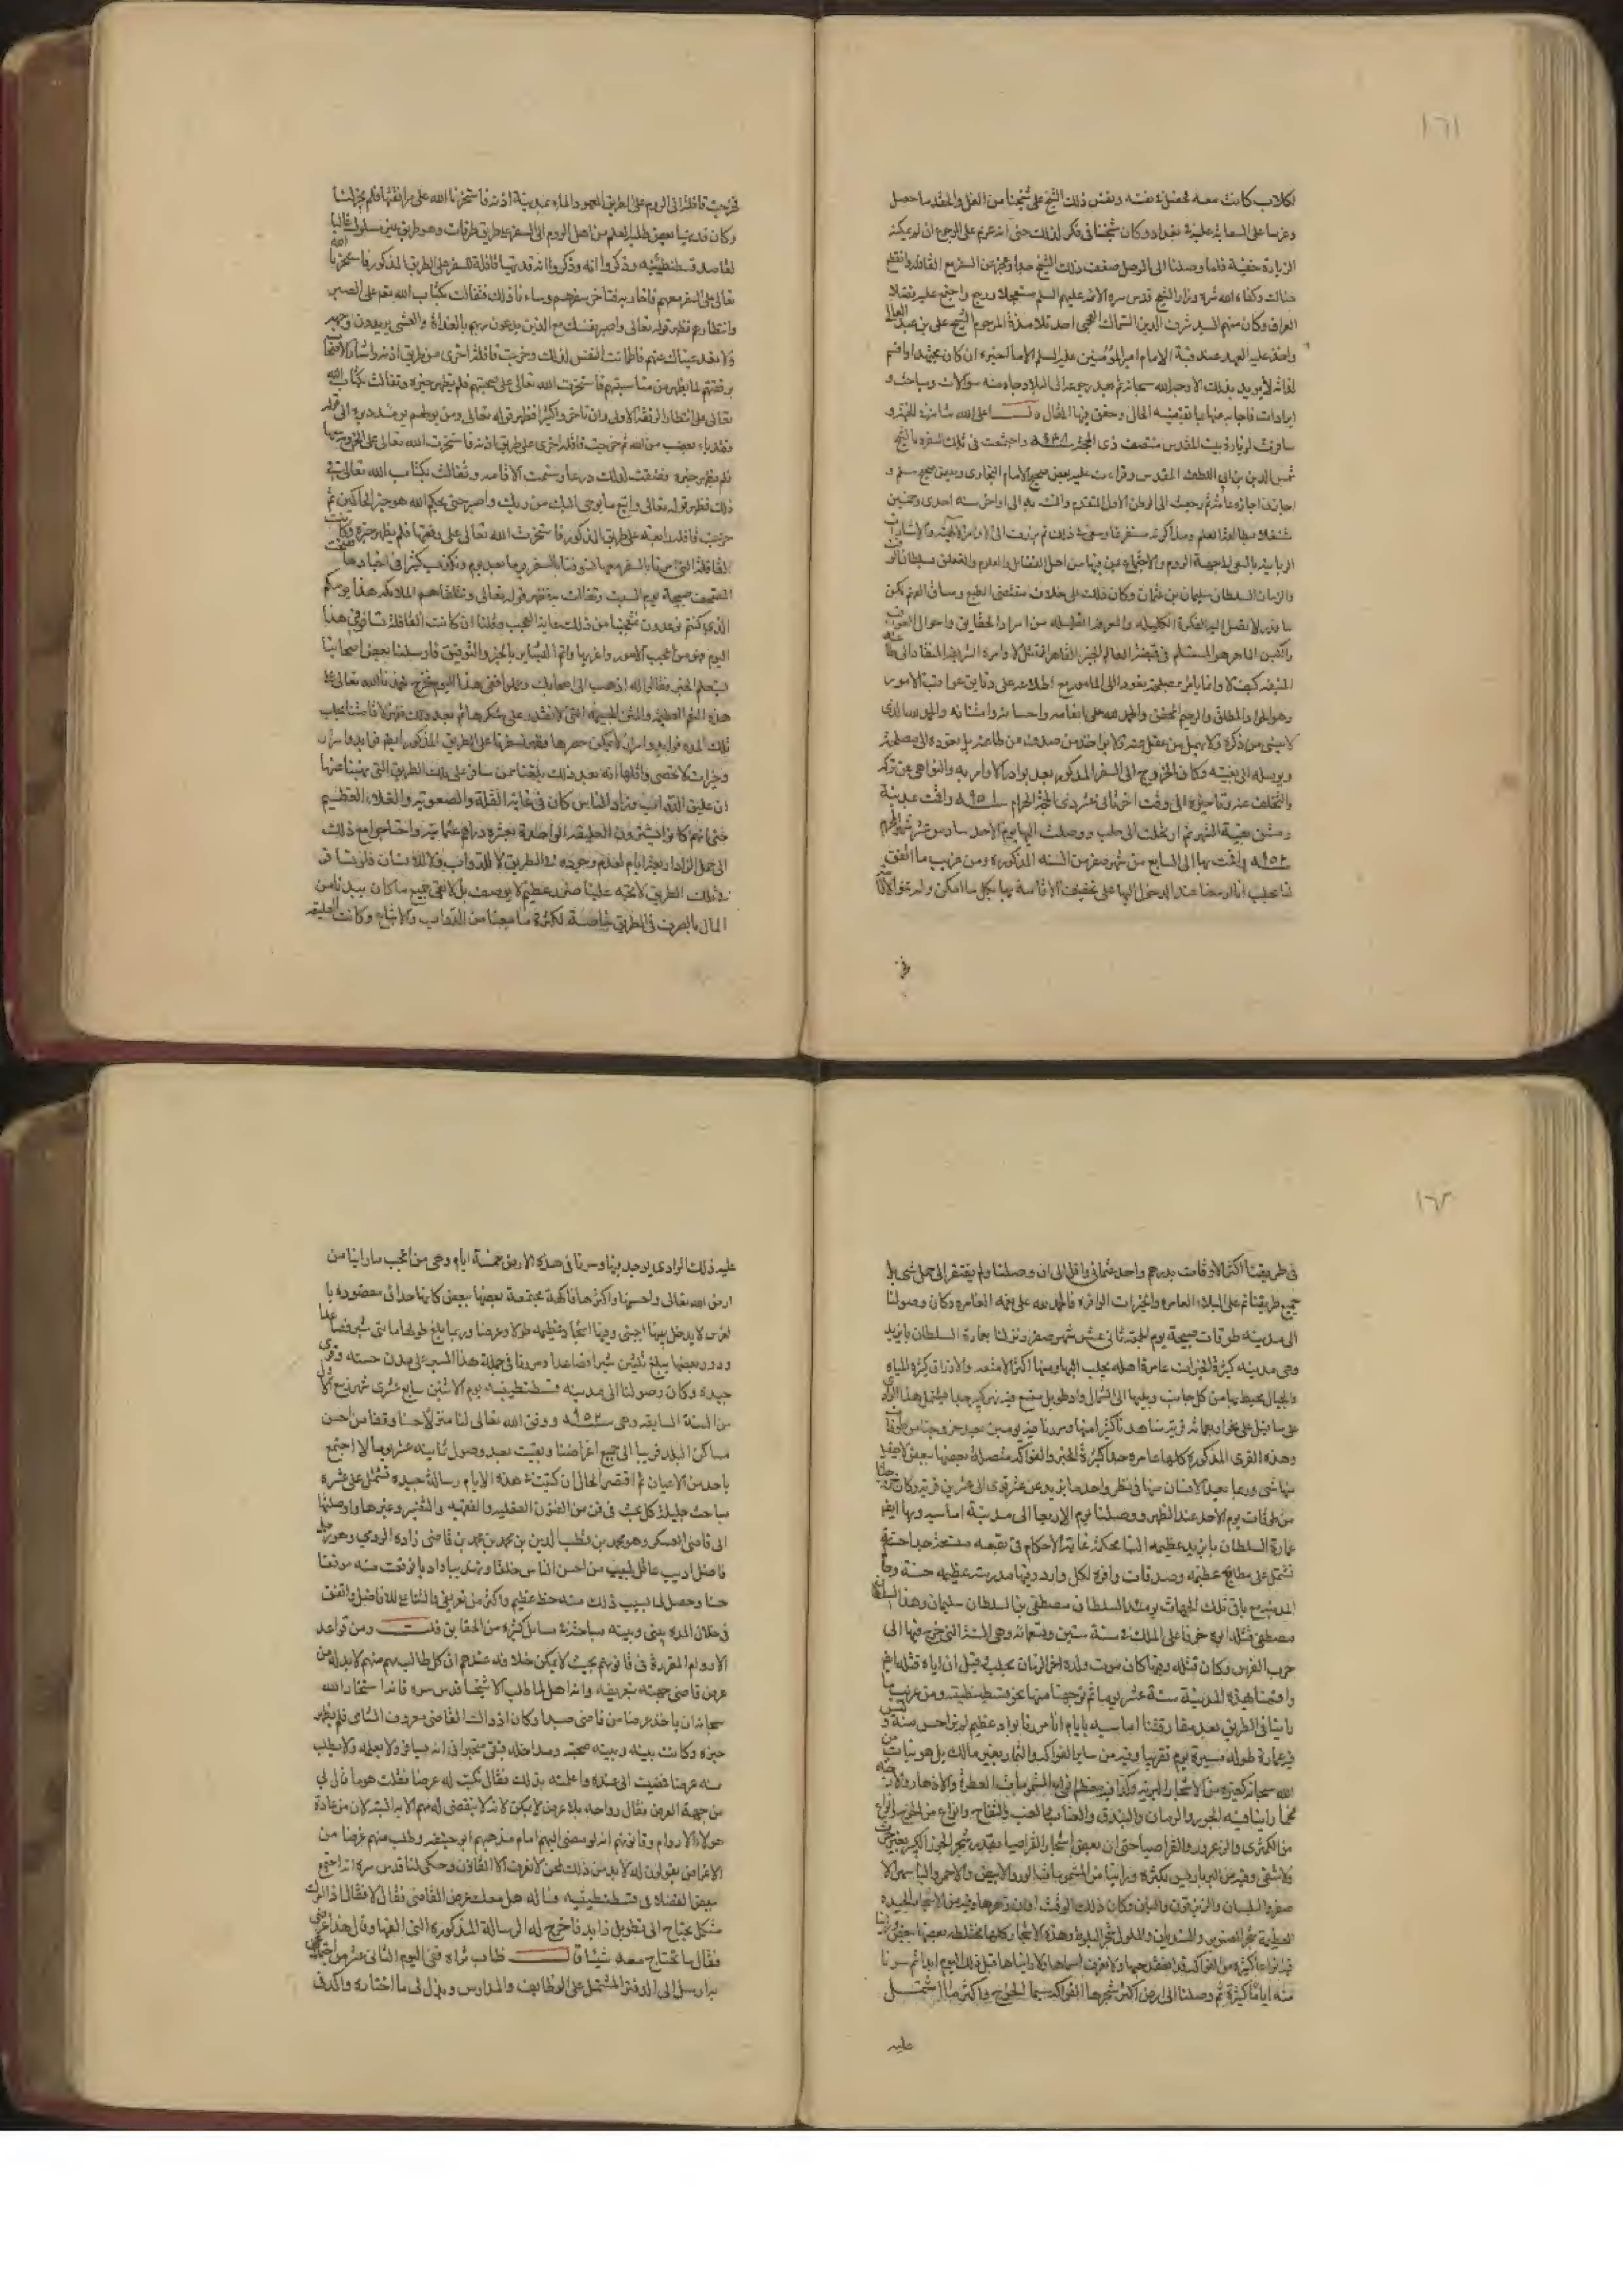 ١٦١
لكلاب كانت معه فحصل في نفسه ونفس ذلك الشيخ على شيخنا من الغل والحقد ما حصل
وعزما على السعاية عليه في بغداد وكان شيخنا في فكر لذلك حتى انه عزم على الرجوع ان لم يمكنه
الزيارة خفية فلما وصلنا الى الموصل ضعف ذلك الشيخ جدا وعجز عن السفر مع القافلة وانقطع
هناك وكفاه الله شره وزار الشيخ قدس سره الائمة عليهم السلم مستعجلا ورجع واجتمع عليه فضلاء
العراق وكان منهم السيد شرف الدين السماك العجمي احد تلامذة المرحوم الشيخ علي بن عبد العالي
واخذ عليه العهد عند قبة الامام امير المؤمنين عليه السلم الا ما اخبره ان كان مجتهدا واقسم
له انه لا يريد بذلك الا وجه الله سبحانه ثم بعد رجوعه الى البلاد جاءه منه سؤالات ومباحث و
ايرادات فاجابه عنها بما يقتضيه الحال وحقق فيها المقال قال اعلى الله شانه ثم
سافرت لزيارة بيت المقدس منتصف ذي الحجة سنة ٩٤٨ واجتمعت في تلك السفرة بالشيخ
شمس الدين بن ابي اللطف المقدسي وقرأت عليه بعض صحيح الامام البخاري وبعض صحيح مسلم و
اجازني اجازة عامة ثم رجعت الى الوطن الاول المتقدم واقمت به الى اواخر سنة احدى وخمسين
مشتغلا بمطالعة العلم ومذاكرته مستفرغا وسعي في ذلك ثم برزت الي الاوامر الالهية والاشارات
الربانية بالسفر الى جهة الروم والاجتماع بمن فيها من اهل الفضائل والعلوم والتعلق بسلطان الوقت
والزمان السلطان سليمان بن عثمان وكان ذلك على خلاف مقتضى الطبع وسياق الفهم لكن
ما قدر لا تصل اليه الفكرة الكليلة والمعرفة القليلة من اسرار الحقايق واحوال العواقب
والكيس الماهر هو المستسلم في قبضة العالم الخبير القاهر الممتثل لاوامره الشريفة المنقاد الى طاعته
المنيفه كيف لا وانما يامر بمصلحة تعود الى المامور مع اطلاعه على دقايق عواقب الامور
وهو الجواد المطلق والرحيم المحقق والحمد لله على انعامه واحسانه وامتنانه والحمد لله الذي
لا ينسى من ذكره ولا يهمل من غفل عنه ولا يؤاخذ من صدف عن طاعته بل يقوده الى مصلحته
ويوصله الى بغيته وكان الخروج الى السفر المذكور بعد بوادر الاوامر به والنواهي عن تركه
والتخلف عنه وتاخيره الى وقت اخر ثاني عشر ذي الحجة الحرام سنة ٩٥١ واقمت بمدينة
دمشق بقية الشهر ثم ارتحلت الى حلب ووصلت اليها يوم الاحد سادس عشر شهر المحرم
سنة ٩٥٢ واقمت بها الى السابع من شهر صفر من السنة المذكورة ومن غريب ما اتفق
لنا بحلب انا ازمعنا عند الدخول اليها على تخفيف الاقامة بها بكل ما امكن ولم ننو الاقامة
فخرجت قافلة الى الروم على الطريق المعهود المار بمدينة اذنه فاستخرنا الله على مرافقتها فلم يخر لنا
وكان قد تهيأ بعض طلبة العلم من اهل الروم الى السفر على طريق طوقات وهو طريق غير مسلوك غالبا
لقاصد قسطنطينيه وذكروا انه قد تهيأ قافلة للسفر على الطريق المذكور فاستخرنا الله
تعالى على السفر معهم فاخار به فتأخر سفرهم وساءنا ذلك فتفألت بكتاب الله تعالى على الصبر
وانتظارهم فظهر قوله تعالى واصبر نفسك مع الذين يدعون ربهم بالغداة والعشي يريدون وجهه
ولا تعد عيناك عنهم فاطمأنت النفس لذلك وخرجت قافلة اخرى من طريق اذنه واشار الاصحاب
برفقتهم لما يظهر من مناسبتهم فاستخرت الله تعالى على صحبتهم فلم يظهر خيره وتفألت بكتاب الله
تعالى على انتظار الرفقة الاولى وان تاخروا كثيرا فظهر قوله تعالى ومن يولهم يومئذ دبره الى قوله
فقد باء بغضب من الله ثم خرجت قافلة اخرى على طريق اذنه فاستخرت الله تعالى على الخروج معها
فلم يظهر خيره فضقت لذلك ذرعا وسئمت الاقامة وتفألت بكتاب الله تعالى في
ذلك فظهر قوله تعالى واتبع ما يوحى اليك من ربك واصبر حتى يحكم الله وهو خير الحاكمين ثم
خرجت قافلة رابعة على الطريق المذكور فاستخرت الله تعالى على رفقتها فلم يظهر خيره وكانت
القافلة التي امرنا بالسفر معها تسوفنا بالسفر يوما بعد يوم وتكذب كثيرا في اخبارها ففتحت
المصحف صبيحة يوم السبت وتفألت به فظهر قوله تعالى وتتلقاهم الملائكة هذا يومكم
الذي كنتم توعدون فتعجبنا من ذلك غاية العجب وقلنا ان كانت القافلة تسافر في هذا
اليوم فهو من اعجب الامور واغربها واتم البشاير بالخير والتوفيق فارسلنا بعض اصحابنا
يستعلم الخبر فقالوا له اذهب الى اصحابك وحملوا ففي هذا اليوم نخرج فحمدنا الله تعالى على
هذه النعم العظيمة والمنن الجسيمة التي لا نقدر على شكرها ثم بعد ذلك ظهر لاقامتنا بحلب
تلك المدة فوايد واسرار لا يمكن حصرها وظهر لسفرنا على الطريق المذكور ايضا فوايد واسرار
وخيرات لا تحصى واقلها انه بعد ذلك بلغنا ممن سافر على تلك الطريق التي نهينا عنها
ان عليق الدواب وزاد الناس كان في غاية القلة والصعوبة والغلاء العظيم
حتى انهم كانوا يشترون العليقة الواحدة بعشرة دراهم عثمانية واحتاجوا مع ذلك
الى حمل الزاد اربعة ايام لعدم وجوده في الطريق لا للدواب ولا للانسان فلو نسافر
في تلك الطريق لاتجه علينا ضرر عظيم لا يوصف بل لا يفي جميع ما كان بيدنا من
المال بالصرف في الطريق خاصة لكثرة ما معنا من الدواب والاتباع وكانت العليقة
١٦٢
في طريقنا اكثر الاوقات بدرهم واحد عثماني واقل الى ان وصلنا ولم يفتقر الى حمل شيء بل
جميع طريقنا تمر على البلاد العامرة والخيرات الوافرة فالحمد لله على نعمه الغامرة وكان وصولنا
الى مدينة طوقات صبيحة يوم الجمعة ثاني عشر شهر صفر ونزلنا بعمارة السلطان بايزيد
وهي مدينة كثيرة الخيرات عامرة اهله يجلب اليها ومنها اكثر الامتعة والارزاق كثيرة المياه
والجبال محيط بها من كل جانب ويليها الى الشمال واد طويل متسع فيه نهر كبير جدا يشتمل هذا الوادي
على ما قيل على نحو اربعمائة قرية شاهدنا كثيرا منها وسرنا فيه يومين بعد خروجنا من طوقات
وهذه القرى المذكورة كلها عامرة جدا كثيرة الخير والفواكه متصلة بعضها ببعض لا يفصل
بينها شيء وربما يعد الانسان منها في نظر واحد ما يزيد عن عشر قرى الى عشرين قرية وكان خروجنا
من طوقات يوم الاحد عند الظهر ووصلنا يوم الاربعا الى مدينة اماسيه وبها ايضا
عمارة السلطان بايزيد عظيمة البناء محكمة غاية الاحكام في بقعة متسعة جدا حسنة
تشتمل على مطابخ عظيمة وصدقات وافرة لكل وارد وفيها مدرسة عظيمة حسنة وحاكم
المدينة مع باقي تلك الجهات يومئذ السلطان مصطفى بن السلطان سليمان وهذا السلطان
مصطفى قتله ابوه خوفا على الملك في سنة ستين وتسعمائة وهي السنة التي خرج فيها الى
حرب الفرس وكان قتله وفيها كان موت ولده اخر الزمان بحلب قيل ان اباه قتله ايضا
واقمنا بهذه المدينة ستة عشر يوما ثم توجهنا منها نحو قسطنطينية ومن غريب ما
رايناه في الطريق بعد مفارقتنا اماسيه بايام انا مررنا بواد عظيم لم نر احسن منه وليس
فيه عمارة طوله مسيرة يوم تقريبا وفيه من ساير الفواكه والثمار بغير مالك بل هو نبات من
الله سبحانه كغيره من الاشجار البرية وكذا فيه معظم انواع المشمومات العطرة والازهار فمما
مما رايناه فيه الجوز والرمان والبندق والعناب والعنب والتفاح وانواع من الخوخ وانواع
من الكمثرى والزعرور والقراصيا حتى ان بعض اشجار القراصيا بقدر شجر الجوز الكبير بغير حرث
ولا سقي وفيه من البرباريس بكثرة ورأينا من المشمومات الورد الابيض والاحمر والياسمين الا
صفر والبيلسان والزيزفون والبان وكان ذلك الوقت اوان زهرها وفيه من الاشجار الجيدة
العظيمة شجر الصنوبر والسنديان والملول شجر البلوط وهذه الاشجار كلها مختلطة بعضها ببعض وراينا
فيه انواعا كثيرة من الفواكه قد انعقد حبها ولا نعرف اسماءها ولا رايناها قبل ذلك اليوم ابدا ثم سرنا
منه اياما كثيرة ثم وصلنا الى ارض اكثر شجرها الفواكه سيما الخوخ واكثر ما اشتمل
عليه ذلك الوادي يوجد بها وسرنا في هذه الارض خمسة ايام وهي من اعجب ما راينا من
ارض الله تعالى واحسنها واكثرها فاكهة مجتمعة بعضها ببعض كانها حدائق منضودة با
لغرس لا يدخل بينها اجنبي وفيها اشجار عظيمة طولا وعرضا وربما بلغ طولها مائتي شبر فصاعدا
ودور بعضها يبلغ ثلثين شبرا فصاعدا ومررنا في جملة هذا السير على مدن حسنة وقرى
جيدة وكان وصولنا الى مدينة قسطنطينيه يوم الاثنين سابع عشري شهر ربيع الاول
من السنة السابقة وهي سنة ٩٥٢ ووفق الله تعالى لنا منزلا حسنا وقفا من احسن
مساكن البلد قريبا الى جميع اغراضنا وبقيت بعد وصولي ثمانية عشر يوما لا اجتمع
باحد من الاعيان ثم اقتضى الحال ان كتبت في هذه الايام رسالة جيدة تشتمل على عشرة
مباحث جليلة كل بحث في فن من الفنون العقلية والفقهية والتفسير وغيرها واوصلتها
الى قاضي العسكر وهو محمد بن قطب الدين بن محمد بن محمد بن قاضي زاده الرومي وهو رجل
فاضل اديب عاقل لبيب من احسن الناس خلقا وتهذيبا وادبا فوقعت منه موقعا
حسنا وحصل لي بسبب ذلك منه حظ عظيم واكثر من تعريفي والثناء علي للافاضل واتفق
في خلال المدة بيني وبينه مباحثة في مسائل كثيرة من الحقايق قلت ومن قواعد
الاروام المقررة في قانونهم بحيث لا يمكن خلافه عندهم ان كل طالب منهم لا بد له من
عرض قاضي جهته بتعريفه وانه اهل لما طلب الا شيخنا قدس سره فانه استخار الله
سبحانه ان ياخذ عرضا من قاضي صيدا وكان اذ ذاك القاضي معروف الشامي فلم يظهر
خيره وكانت بينه وبينه صحبة ومداخلة فبقي متحيرا في انه يسافر ولا يعلمه ولا يطلب
منه عرضا فمضيت الى عنده واعلمته بذلك فقال نكتب له عرضا فقلت هو ما قال لي
من جهة العرض فقال رواحه بلا عرض لا يمكن لانه لا ينقضي له مهم الا به البتة لان من عادة
هولاء الاروام وقانونهم انه لو مضى اليهم امام مذهبهم ابو حنيفة وطلب منهم غرضا من
الاغراض يقولون له لا بد من ذلك نحن لا نعرف الا القانون وحكى لنا قدس سره انه اجتمع
ببعض الفضلاء في قسطنطينيه فساله هل معك عرض القاضي فقال لا فقال اذا امرك
مشكل يحتاج الى تطويل زايد فاخرج له الرسالة المذكورة التي الفها وقال هذا عرضي
فقال ما تحتاج معه شيئا قال طاب ثراه ففي اليوم الثاني عشر من اجتماعي
به ارسل الى الدفتر المشتمل على الوظايف والمدارس وبذل لي ما اختاره واكد في